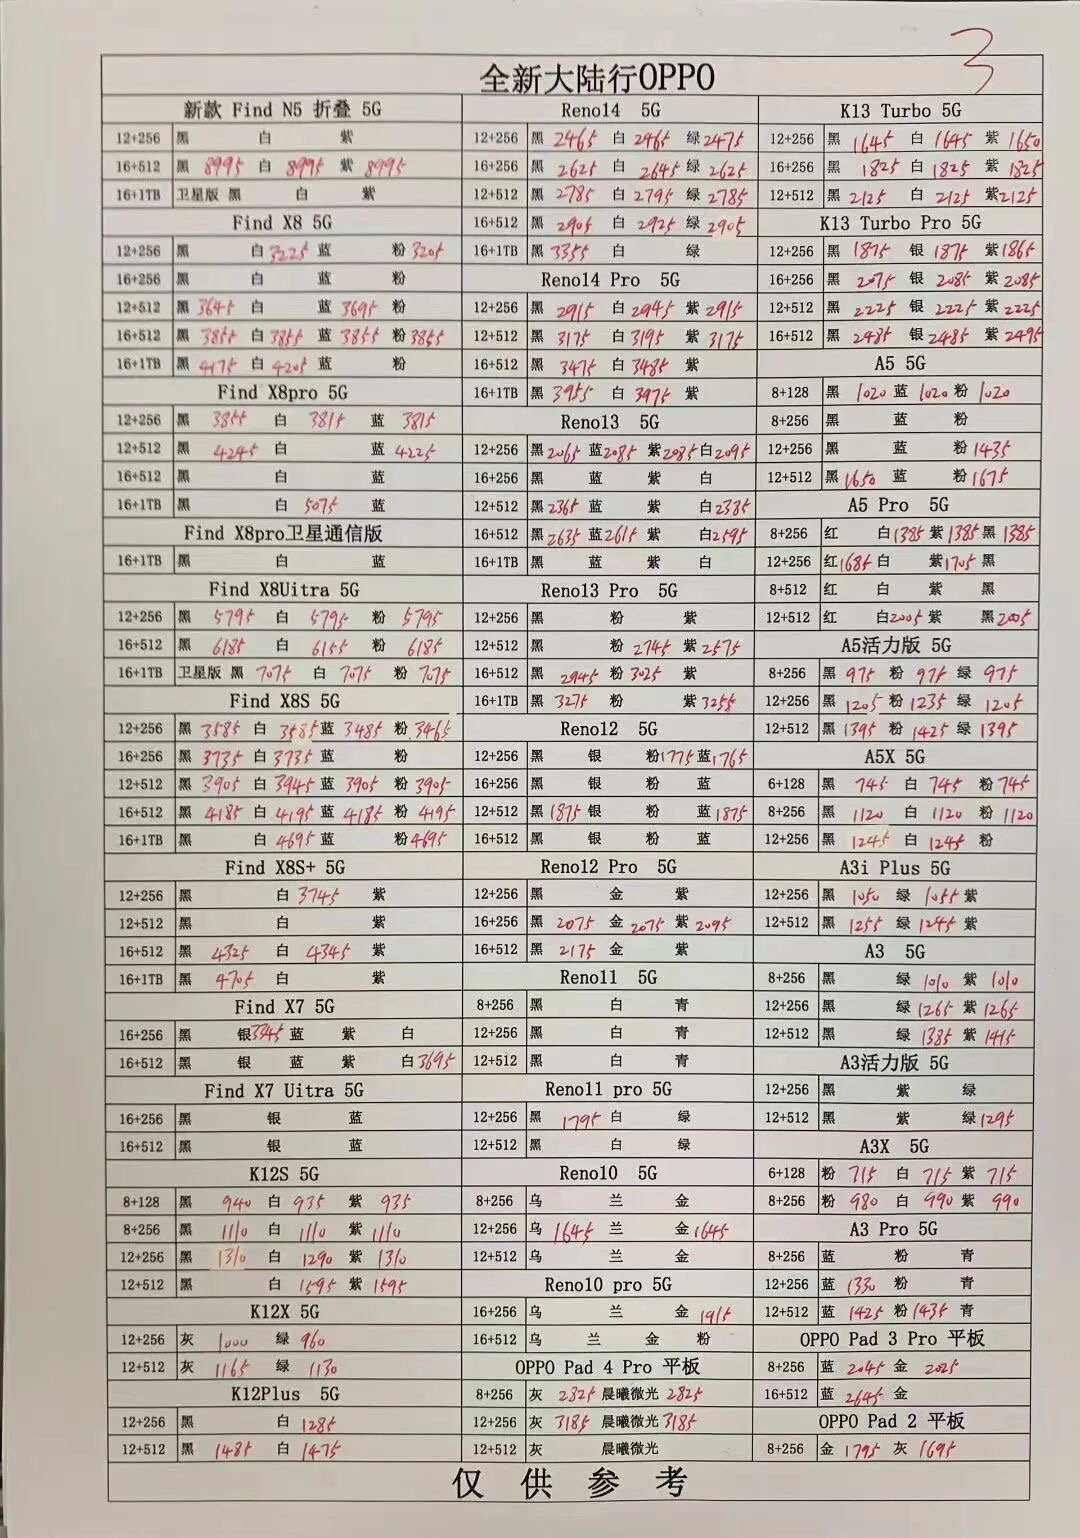 3
全新大陆行OPPO
新款 Find N5 折叠 5G
12+256 黑 白 紫
16+512 黑 8995 白 8995 紫 8995
16+1TB 卫星版 黑 白 紫
Find X8 5G
12+256 黑 白 3225 蓝 粉 3205
16+256 黑 白 蓝 粉
12+512 黑 3645 白 蓝 3695 粉
16+512 黑 3855 白 3855 蓝 3855 粉 3855
16+1TB 黑 4175 白 4205 蓝 粉
Find X8pro 5G
12+256 黑 3855 白 3815 蓝 3815
12+512 黑 4245 白 蓝 4225
16+512 黑 白 蓝
16+1TB 黑 白 5075 蓝
Find X8pro卫星通信版
16+1TB 黑 白 蓝
Find X8Uitra 5G
12+256 黑 5795 白 5795 粉 5795
16+512 黑 6185 白 6155 粉 6185
16+1TB 卫星版 黑 7075 白 7075 粉 7075
Find X8S 5G
12+256 黑 3585 白 3585 蓝 3485 粉 3465
16+256 黑 3735 白 3735 蓝 粉
12+512 黑 3905 白 3945 蓝 3905 粉 3905
16+512 黑 4185 白 4195 蓝 4185 粉 4195
16+1TB 黑 白 4695 蓝 粉 4695
Find X8S+ 5G
12+256 黑 白 3745 紫
12+512 黑 白 紫
16+512 黑 4325 白 4345 紫
16+1TB 黑 4705 白 紫
Find X7 5G
16+256 黑 银 3345 蓝 紫 白
16+512 黑 银 蓝 紫 白 3695
Find X7 Uitra 5G
16+256 黑 银 蓝
16+512 黑 银 蓝
K12S 5G
8+128 黑 940 白 935 紫 935
8+256 黑 1110 白 1110 紫 1110
12+256 黑 1310 白 1290 紫 1310
12+512 黑 白 1595 紫 1595
K12X 5G
12+256 灰 1000 绿 960
12+512 灰 1165 绿 1130
K12Plus 5G
12+256 黑 白 1285
12+512 黑 1485 白 1475
Reno14 5G
12+256 黑 2465 白 2465 绿 2475
16+256 黑 2625 白 2645 绿 2625
12+512 黑 2785 白 2795 绿 2785
16+512 黑 2905 白 2925 绿 2905
16+1TB 黑 3355 白 绿
Reno14 Pro 5G
12+256 黑 2915 白 2945 紫 2915
12+512 黑 3175 白 3195 紫 3175
16+512 黑 3475 白 3485 紫
16+1TB 黑 3955 白 3975 紫
Reno13 5G
12+256 黑 2065 蓝 2085 紫 2085 白 2095
16+256 黑 蓝 紫 白
12+512 黑 2365 蓝 紫 白 2335
16+512 黑 2635 蓝 2615 紫 白 2595
16+1TB 黑 蓝 紫 白
Reno13 Pro 5G
12+256 黑 粉 紫
12+512 黑 粉 2745 紫 2575
16+512 黑 2945 粉 3025 紫
16+1TB 黑 3275 粉 紫 3255
Reno12 5G
12+256 黑 银 粉 1775 蓝 1765
16+256 黑 银 粉 蓝
12+512 黑 1875 银 粉 蓝 1875
16+512 黑 银 粉 蓝
Reno12 Pro 5G
12+256 黑 金 紫
16+256 黑 2075 金 2075 紫 2095
16+512 黑 2175 金 紫
Reno11 5G
8+256 黑 白 青
12+256 黑 白 青
12+512 黑 白 青
Reno11 pro 5G
12+256 黑 1795 白 绿
12+512 黑 白 绿
Reno10 5G
8+256 乌 兰 金
12+256 乌 1645 兰 金 1645
12+512 乌 兰 金
Reno10 pro 5G
16+256 乌 兰 金 1915
16+512 乌 兰 金 粉
OPPO Pad 4 Pro 平板
8+256 灰 2825 晨曦微光 2825
12+256 灰 3185 晨曦微光 3185
12+512 灰 晨曦微光
K13 Turbo 5G
12+256 黑 1645 白 1645 紫 1650
16+256 黑 1825 白 1825 紫 1825
12+512 黑 2125 白 2125 紫 2125
K13 Turbo Pro 5G
12+256 黑 1875 银 1875 紫 1865
16+256 黑 2075 银 2085 紫 2085
12+512 黑 2225 银 2225 紫 2225
16+512 黑 2485 银 2485 紫 2495
A5 5G
8+128 黑 1020 蓝 1020 粉 1020
8+256 黑 蓝 粉
12+256 黑 蓝 粉 1435
12+512 黑 1650 蓝 粉 1675
A5 Pro 5G
8+256 红 白 1385 紫 1385 黑 1385
12+256 红 1685 白 紫 1705 黑
8+512 红 白 紫 黑
12+512 红 白 2005 紫 黑 2005
A5活力版 5G
8+256 黑 975 粉 975 绿 975
12+256 黑 1205 粉 1235 绿 1205
12+512 黑 1395 粉 1425 绿 1395
A5X 5G
6+128 黑 745 白 745 粉 745
8+256 黑 1120 白 1120 粉 1120
12+256 黑 1245 白 1245 粉
A3i Plus 5G
12+256 黑 1050 绿 1055 紫
12+512 黑 1255 绿 1245 紫
A3 5G
8+256 黑 绿 1010 紫 1010
12+256 黑 绿 1265 紫 1265
12+512 黑 绿 1385 紫 1415
A3活力版 5G
12+256 黑 紫 绿
12+512 黑 紫 绿 1295
A3X 5G
6+128 粉 715 白 715 紫 715
8+256 粉 980 白 990 紫 990
A3 Pro 5G
8+256 蓝 粉 青
12+256 蓝 1330 粉 青
12+512 蓝 1425 粉 1435 青
OPPO Pad 3 Pro 平板
8+256 蓝 2045 金 2025
16+512 蓝 2645 金
OPPO Pad 2 平板
8+256 金 1795 灰 1695
仅供参考